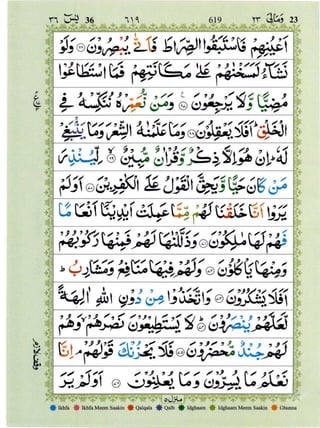 يٰسٓ 36 ٣٦ ٦١٩ 619 وَمَالِيَ ٢٣ 23
اَعْيُنِهِمْ فَاسْتَبَقُوا الصِّرَاطَ فَاَنّٰى يُبْصِرُوْنَ ۝ وَلَوْ
نَشَآءُ لَمَسَخْنٰهُمْ عَلٰى مَكَانَتِهِمْ فَمَا اسْتَطَاعُوْا
مُضِيًّا وَّلَا يَرْجِعُوْنَ ۝ وَمَنْ نُّعَمِّرْهُ نُنَكِّسْهُ فِى
الْخَلْقِ ؕ اَفَلَا يَعْقِلُوْنَ ۝ وَمَا عَلَّمْنٰهُ الشِّعْرَ وَمَا يَنْۢبَغِىْ
لَهٗ ؕ اِنْ هُوَ اِلَّا ذِكْرٌ وَّقُرْاٰنٌ مُّبِيْنٌ ۝ لِّيُنْذِرَ
مَنْ كَانَ حَيًّا وَّيَحِقَّ الْقَوْلُ عَلَى الْكٰفِرِيْنَ ۝ اَوَلَمْ
يَرَوْا اَنَّا خَلَقْنَا لَهُمْ مِّمَّا عَمِلَتْ اَيْدِيْنَاۤ اَنْعَامًا
فَهُمْ لَهَا مٰلِكُوْنَ ۝ وَذَلَّلْنٰهَا لَهُمْ فَمِنْهَا رَكُوْبُهُمْ
وَمِنْهَا يَاْكُلُوْنَ ۝ وَلَهُمْ فِيْهَا مَنَافِعُ وَمَشَارِبُ ؕ
اَفَلَا يَشْكُرُوْنَ ۝ وَاتَّخَذُوْا مِنْ دُوْنِ اللّٰهِ اٰلِهَةً
لَّعَلَّهُمْ يُنْصَرُوْنَ ؕ۝ لَا يَسْتَطِيْعُوْنَ نَصْرَهُمْ ۙ وَهُمْ
لَهُمْ جُنْدٌ مُّحْضَرُوْنَ ۝ فَلَا يَحْزُنْكَ قَوْلُهُمْ ۘ اِنَّا
نَعْلَمُ مَا يُسِرُّوْنَ وَمَا يُعْلِنُوْنَ ۝ اَوَلَمْ يَرَ
منزل ٥
وقف لازم
Ikhfa Ikhfa Meem Saakin Qalqala Qalb Idghaam Idghaam Meem Saakin Ghunna